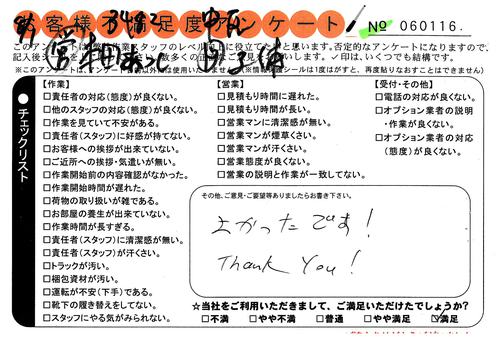 お客様不満足度アンケート № 060116.
このアンケートは弊社作業スタッフのレベル向上に役立てたいと思います。否定的なアンケートになりますので、
【作業】
□責任者の対応(態度)が良くない。
□他のスタッフの対応(態度)が良くない。
□作業を見ていて不安がある。
□責任者(スタッフ)に好感が持てない。
□お客様への挨拶が出来ていない。
□ご近所への挨拶・気遣いが無い。
□作業開始前の内容確認がなかった。
□作業開始時間が遅れた。
□荷物の取り扱いが雑である。
□お部屋の養生が出来ていない。
□作業時間が長すぎる。
□責任者(スタッフ)に清潔感が無い。
□責任者(スタッフ)が汗くさい。
□トラックが汚い。
□梱包資材が汚い。
□運転が不安(下手)である。
□靴下の履き替えをしてない。
□スタッフにやる気がみられない。
【営業】
□見積もり時間に遅れた。
□見積もり時間が長い。
□営業マンに清潔感が無い。
□営業マンが煙草くさい。
□営業マンが汗くさい。
□営業態度が良くない。
□営業の説明と作業が一致してない。
【受付・その他】
□電話の対応が良くない。
□オプション業者の説明
・作業が良くない。
□オプション業者の対応
(態度)が良くない。
● チェックリスト
その他、ご意見・ご要望等ありましたらお書き下さい。
よかったです!
Thank You!
☆当社をご利用いただきまして、ご満足いただけたでしょうか?
□不満 □やや不満 □普通 □やや満足 ☑満足